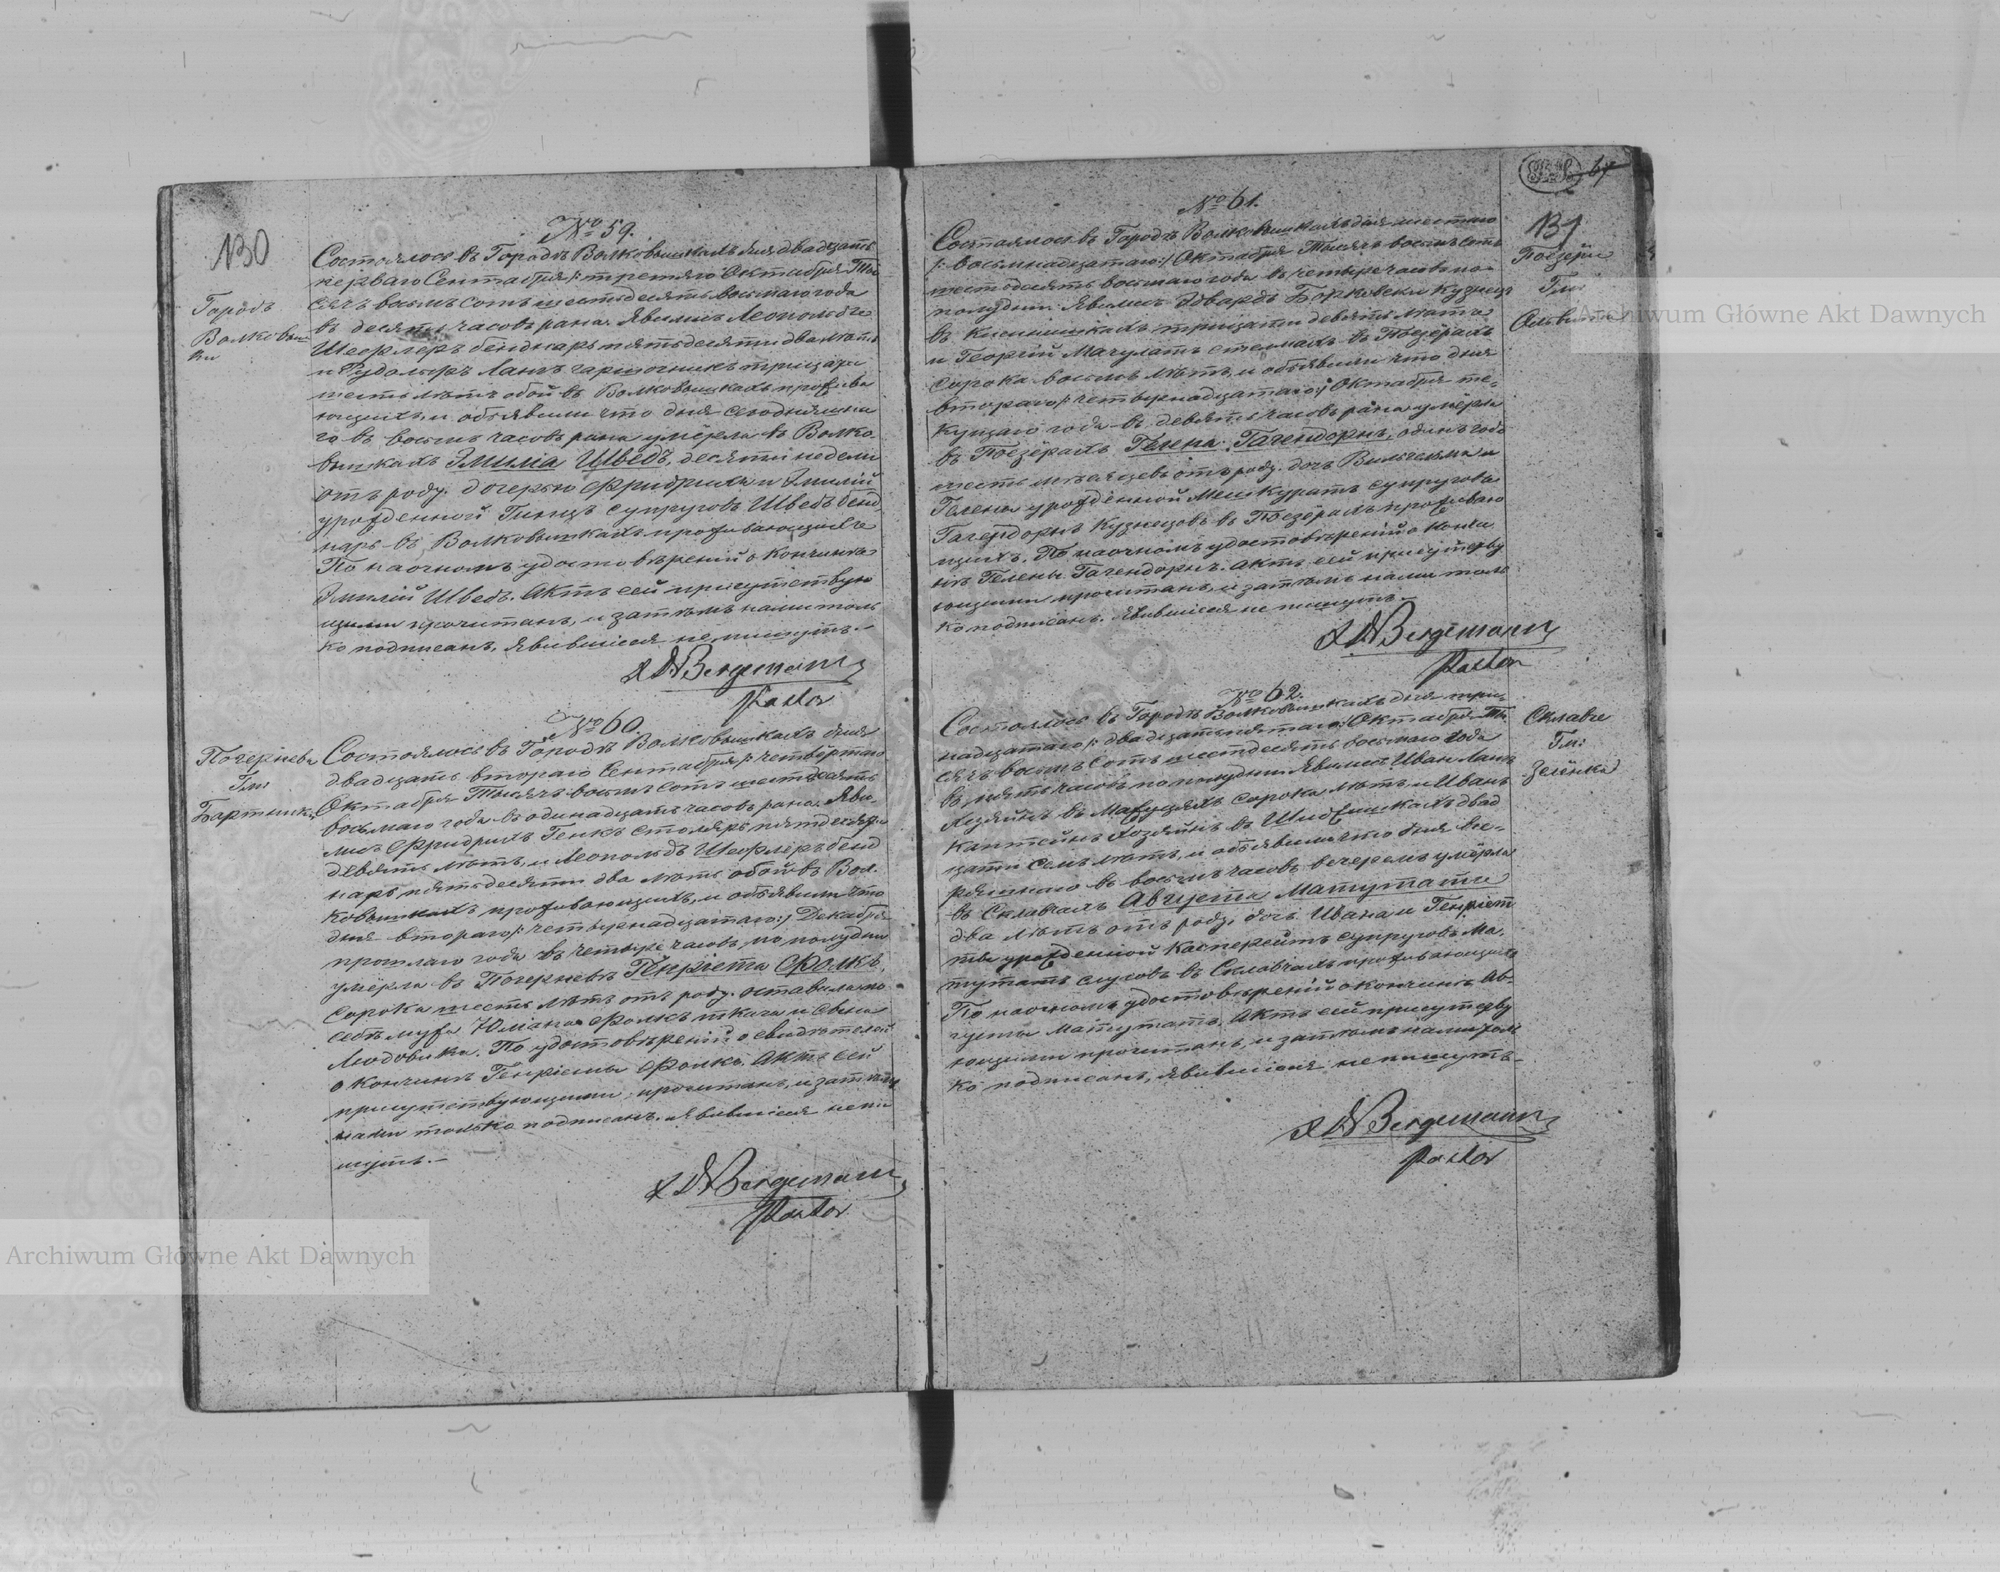 130
Городъ
Волковыш
ки
№ 59.
Состоялось въ Городѣ Волковышкахъ дня двадцать
перваго Сентября /: третяго Октября Ты
сячъ восемь сотъ шестьдесятъ восьмаго года
въ десять часовъ рана. Явились Леопольдъ
Шефлеръ бенднарь пятьдесяти два лѣтъ
и Рудольфъ Лангъ гарночникъ тридцати
шесть лѣтъ обой въ Волковышкахъ прожива
ющихъ, и объявили что дня сегоднешня
го въ восемь часовъ рана умёрла въ Волко
вышкахъ Эмилiа Шведъ, десяти недели
отъ роду. дочерью Фридриха и Эмилiй
урожденной Гинцъ супруговъ Шведъ бенд
нарь въ Волковышкахъ проживающихъ
По наочномъ удостовѣренiй о кончинѣ
Эмилiй Шведъ. Актъ сей присутствую
щимъ прочитанъ, и затѣмъ нами толь
ко подписанъ, явившiеся не пишутъ.—
Bergemann
Pastor
Почернева
Гм:
Бартники
№ 60.
Состоялось въ Городѣ Волковышкахъ дня
двадцать втораго Сентября /: четвёртаго
Октября Тысячъ восемь сотъ шестьдесятъ
восьмаго года въ одинадцать часовъ рана. Яви
лись Фридрихъ Генкъ столяръ пятдесяти
девять лѣтъ, и Леопольдъ Шефлеръ бенд
нарь пятьдесяти два лѣтъ обой въ Вол
ковышкахъ проживающихъ, и объявили что
дня втораго /: четырнадцатаго :/ Декабря
прошлаго года въ четыре часовъ по полудни
умёрла въ Почерневѣ Генрiета Фолкъ,
сорока шесть лѣтъ отъ роду. оставила по
себѣ мужа Юлiана Фолкъ ткача и сына
Людовика. По удостовѣренiй о свидѣтелей
о кончинѣ Генрiеты Фолкъ. Актъ сей
присутствующимъ прочитанъ, и затѣмъ
нами только подписанъ. явившiеся не пи
шутъ.—
Bergemann
Pastor
64
131
Поезёри
Гм:
№ 61.
Состоялось въ Городѣ Волковышкахъ дня шестаго
/: восьмнадцатаго :/ Октября Тысячъ восемь сотъ
шестдесятъ восьмаго года въ четыре часовъ по
полудни. Явились Эдвардъ Борковски Кузнецъ
въ тридцати девять лѣтъ
и Георгiй Мачулатъ стелмахъ въ Поезёрахъ
сорока восемь лѣтъ, и объявили что дня
втораго /: четырнадцатаго :/ Октября те-
кущаго года въ девять часовъ рана умёрла
въ Поезёрахъ Гелена Гагендорнъ, одинъ года
шесть мѣсяцевъ отъ роду. дочь Вильгельма и
Гелены урожденной Мешкуратъ супруговъ
Гагендорнъ Кузнецовъ въ Поезёрахъ проживаю
щихъ. По наочномъ удостовѣренiй о кончи
нѣ Гелены Гагендорнъ. Актъ сей присутству
ющими прочитанъ, и затѣмъ нами толь
ко подписанъ. явившiеся не пишутъ.—
Bergemann
Pastor
Склавче
Гм:
Зелёнка
№ 62.
Состоялось въ Городѣ Волковышкахъ дня три-
надцатаго /: двадцатьпятаго :/ Октября Ты
сячъ восемь сотъ шестдесятъ восьмаго года
въ пять часовъ по полудни. Явились Иванъ Лангъ
Хозяйнъ въ сорока лѣтъ, и Иванъ
Хозяйнъ въ двад
цати семь лѣтъ, и объявили что дня вче-
рашнаго въ восемь часовъ вечеромъ умёрла
въ Склавчахъ Августа Матутатъ
два лѣтъ отъ роду, дочь Ивана и Генрiет
ты урожденной Касперейтъ супруговъ Ма
тутатъ слуговъ въ Склавчахъ проживающихъ
По наочномъ удостовѣренiй о кончинѣ Ав-
густы Матутатъ. Актъ сей присутству
ющими прочитанъ, и затѣмъ нами толь
ко подписанъ, явившiеся не пишутъ.—
Bergemann
Pastor
Archiwum Główne Akt Dawnych
Archiwum Główne Akt Dawnych